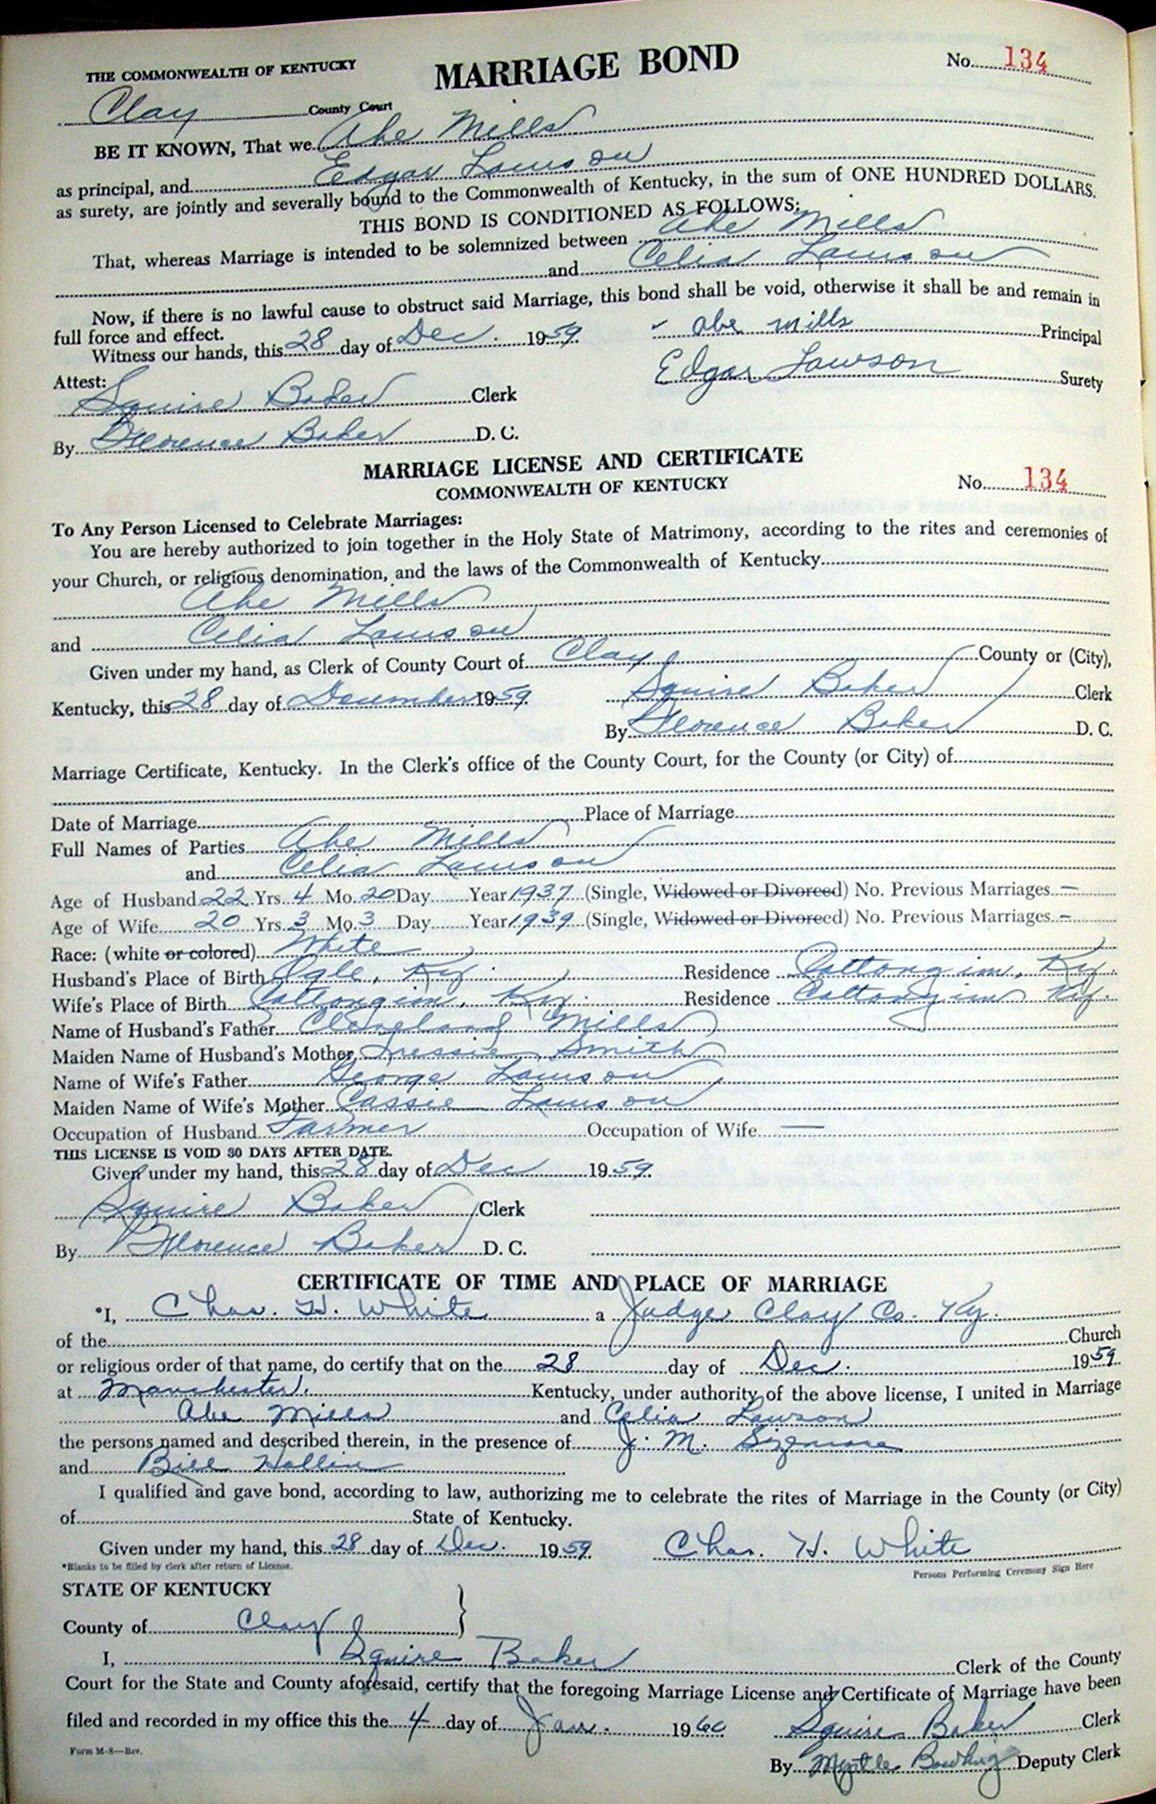 THE COMMONWEALTH OF KENTUCKY
MARRIAGE BOND
No. 134
Clay County Court
BE IT KNOWN, That we Abe Mills
as principal, and Edgar Lawson
as surety, are jointly and severally bound to the Commonwealth of Kentucky, in the sum of ONE HUNDRED DOLLARS.
THIS BOND IS CONDITIONED AS FOLLOWS:
That, whereas Marriage is intended to be solemnized between Abe Mills
and Celia Lawson
Now, if there is no lawful cause to obstruct said Marriage, this bond shall be void, otherwise it shall be and remain in
full force and effect.
Witness our hands, this 28 day of Dec. 1959
abe mills Principal
Edgar Lawson Surety
Attest:
Squire Baker Clerk
By Florence Baker D. C.
MARRIAGE LICENSE AND CERTIFICATE
COMMONWEALTH OF KENTUCKY
No. 134
To Any Person Licensed to Celebrate Marriages:
You are hereby authorized to join together in the Holy State of Matrimony, according to the rites and ceremonies of
your Church, or religious denomination, and the laws of the Commonwealth of Kentucky
Abe Mills
and Celia Lawson
Given under my hand, as Clerk of County Court of Clay County or (City),
Kentucky, this 28 day of December 1959 Squire Baker Clerk
By Florence Baker D. C.
Marriage Certificate, Kentucky. In the Clerk's office of the County Court, for the County (or City) of
Date of Marriage Place of Marriage
Full Names of Parties Abe Mills
and Celia Lawson
Age of Husband 22 Yrs. 4 Mo. 20 Day Year 1937 (Single, Widowed or Divorced) No. Previous Marriages —
Age of Wife 20 Yrs. 3 Mo. 3 Day Year 1939 (Single, Widowed or Divorced) No. Previous Marriages —
Race: (white or colored) White
Husband's Place of Birth Ogle, Ky. Residence Cottongim, Ky.
Wife's Place of Birth Cottongim, Ky. Residence Cottongim Ky.
Name of Husband's Father Cleveland Mills
Maiden Name of Husband's Mother Smith
Name of Wife's Father George Lawson
Maiden Name of Wife's Mother Cassie Lawson
Occupation of Husband Farmer Occupation of Wife —
THIS LICENSE IS VOID 30 DAYS AFTER DATE.
Given under my hand, this 28 day of Dec 1959
Squire Baker Clerk
By Florence Baker D. C.
CERTIFICATE OF TIME AND PLACE OF MARRIAGE
*I, Chas. H. White a Judge Clay Co. Ky.
of the Church
or religious order of that name, do certify that on the 28 day of Dec. 1959
at Manchester. Kentucky, under authority of the above license, I united in Marriage
Abe Mills and Celia Lawson
the persons named and described therein, in the presence of J. M. Sizemore
and Bill Hollin
I qualified and gave bond, according to law, authorizing me to celebrate the rites of Marriage in the County (or City)
of State of Kentucky.
Given under my hand, this 28 day of Dec. 1959 Chas. H. White
*Blanks to be filled by clerk after return of License.
Persons Performing Ceremony Sign Here
STATE OF KENTUCKY
County of Clay }
I, Squire Baker Clerk of the County
Court for the State and County aforesaid, certify that the foregoing Marriage License and Certificate of Marriage have been
filed and recorded in my office this the 4 day of Jan. 1960 Squire Baker Clerk
Form M-8—Rev.
By Myrtle Bowling Deputy Clerk